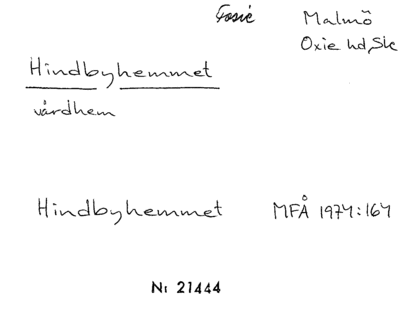 Fosie Malmö
Oxie hd, Sk
Hindbyhemmet
vårdhem
Hindbyhemmet MFÅ 1974:164
Nr 21444